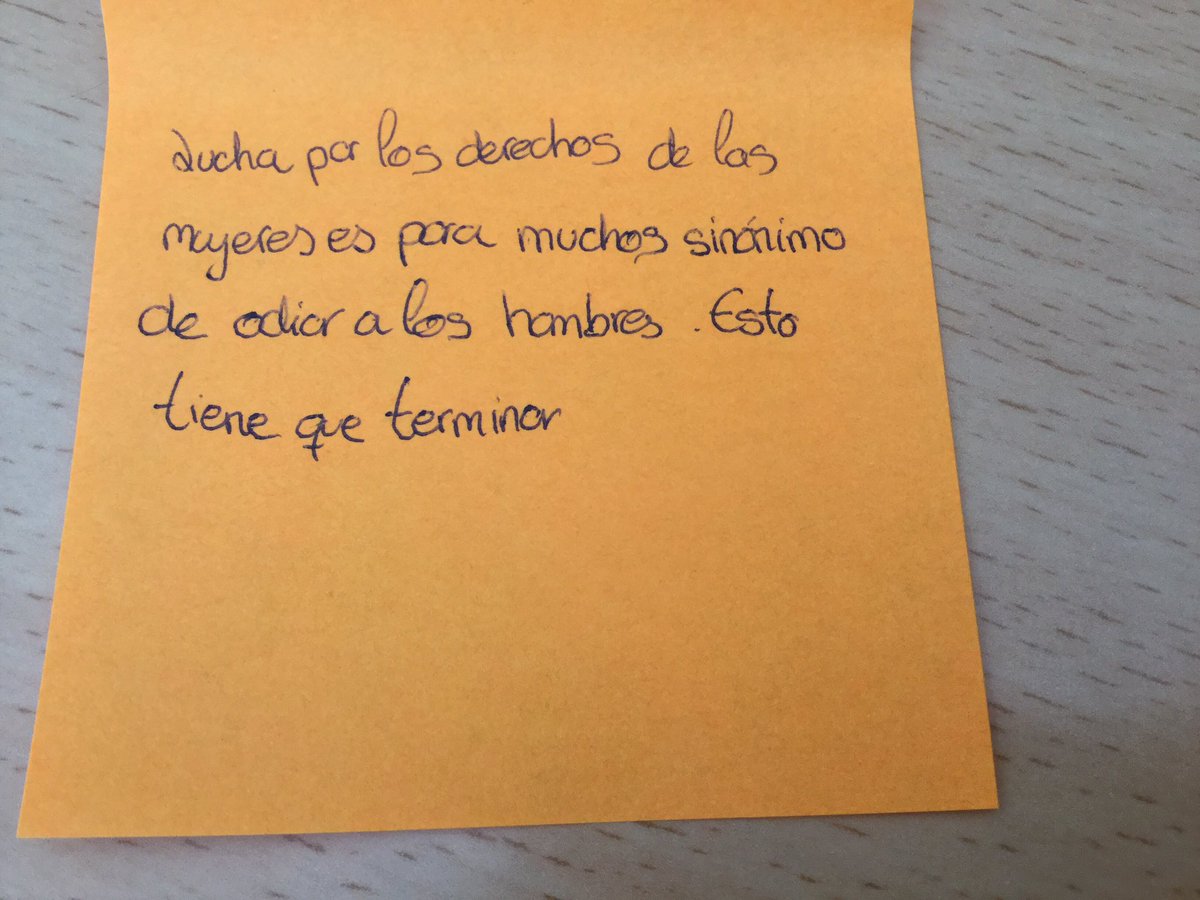 Lucha por los derechos de las
mujeres es para muchos sinónimo
de odiar a los hombres. Esto
tiene que terminar